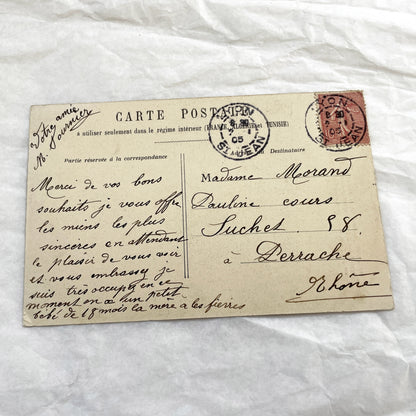 Votre amie
M. Fournier
CARTE POSTALE
à utiliser seulement dans le régime intérieur (FRANCE, ALGÉRIE et TUNISIE)
Partie réservée à la correspondance
Destinataire
LYON
ST JEAN
05
LYON
ST JEAN
05
Merci de vos bons
souhaits je vous offre
les miens les plus
sincères en attendant
le plaisir de vous voir
et vous embrassez je
suis très occupé en ce
moment on a un petit
bébé de 18 mois la mère a les fièvres
Madame Morand
Pauline cours
Suchet 58.
à Perrache
Rhône